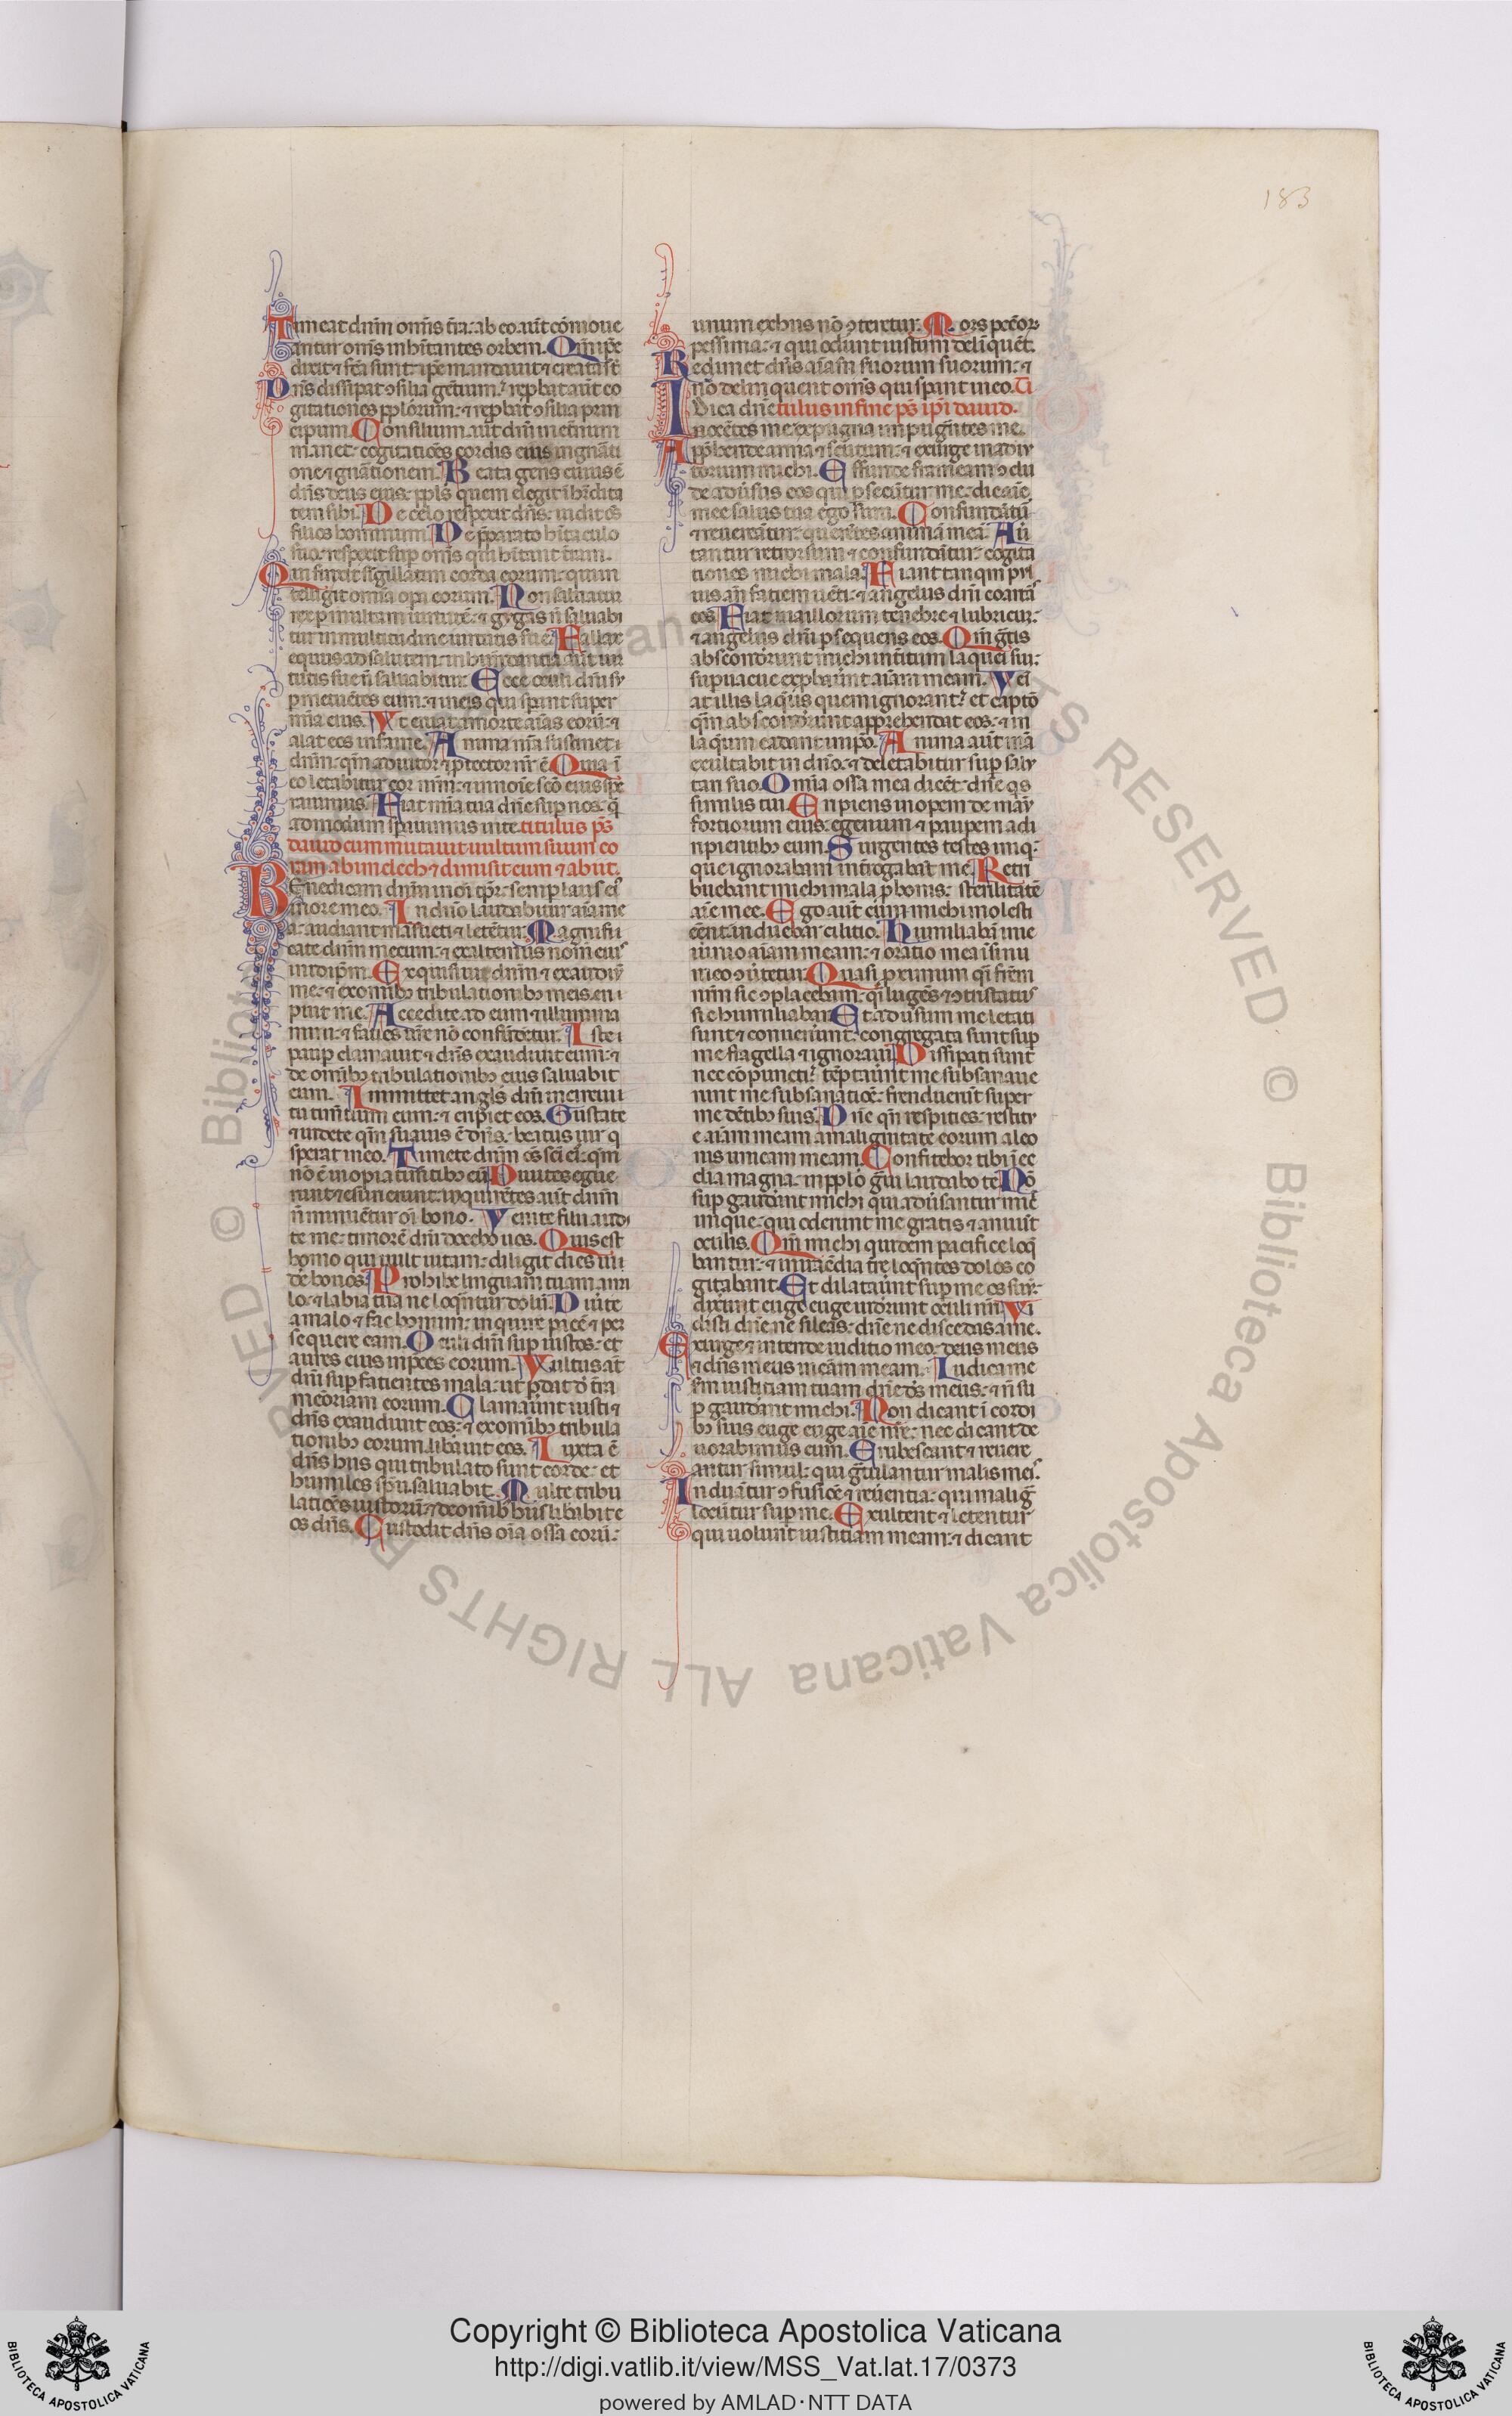 183
Timeat dn̄m om̄s t̄ra: ab eo aūt cōmoue
antur om̄s inhītantes orbem. Qm̄ ip̄e
dixit ⁊ fc̄a sunt: ip̄e mandauit ⁊ creata st̄
Dn̄s dissipat ɔsilia gētium: rep̄bat aūt co
gitationes pplōrum: ⁊ rep̄bat ɔsilia prin
cipum. Consilium aūt dn̄i inet̄num
manet: cogitatiōes cordis eius in gn̄ati
one ⁊ gn̄ationem. Beata gens cuius ē
dn̄s deus eius: ppl̄s quem elegit ī hīdita
tem sibi. De celo respexit dn̄s: uidit oēs
filios hominum. De p̄parato hītaculo
suo: respexit sup om̄s qui hītant t̄ram.
Qui finxit sigillatim corda eorum: qui in
telligit omīa opa eorum. Non saluatur
rex p multam uirtutē: ⁊ gygas n̄ saluabi
tur in multitudine uirtutis sue. Fallax
equus ad salutem: in hundantia aūt uir
tutis sue n̄ saluabitur. Ecce oculi dn̄i su
p metuētes eum: ⁊ in eis qui spant super
mīa eius. Vt eruat a morte aīas eorū: ⁊
alat eos in fame. Anima nr̄a sustinet
dn̄m: qm̄ adiutor ⁊ ptector nr̄ ē. Quia ī
eo letabitur cor nr̄m: ⁊ in noīe scō eius spe
rauimus. Fiat mīa tua dn̄e sup nos: q̄
admodum spauimus in te. titulus ps̄
dauid cum mutauit uultum suum co
ram abimelech ⁊ dimisit eum ⁊ abiit.
Benedicam dn̄m in oī tp̄r: semp laus ei
in ore meo. In dn̄o laudabitur aīa me
a: audiant māsueti ⁊ letētur. Magnifi
cate dn̄m mecum: ⁊ exaltemus nom̄ eius
in id ip̄m. Exquisiui dn̄m ⁊ exaudiuit
me: ⁊ ex omībꝫ tribulationibꝫ meis eri
puit me. Accedite ad eum ⁊ illumina
mini: ⁊ facies ur̄e nō confūdētur. Iste
paup clamauit ⁊ dn̄s exaudiuit eum: ⁊
de omībꝫ tribulationibꝫ eius saluabit
eum. Immittet angl̄s dn̄i in circui
tu timētium eum: ⁊ eripiet eos. Gustate
⁊ uidete qm̄ suauis ē dn̄s: beatus uir q
sperat in eo. Timete dn̄m oēs sc̄i ei: qm̄
nō ē inopia timētibꝫ eū. Diuites egue
runt ⁊ esurierunt: inquirētes aūt dn̄m
n̄ minuētur oī bono. Venite filii audi
te me: timorē dn̄i docebo uos. Quis est
homo qui uult uitam: diligit dies ui
de bonos. Prohibe linguam tuam a ma
lo: ⁊ labia tua ne loqn̄tur dolū. Diuite
a malo ⁊ fac bonum: inquire pacē ⁊ per
sequere eam. Oculi dn̄i sup iustos: et
aures eius in p̄ces eorum. Vultus aūt
dn̄i sup facientes mala: ut p̄dat d̄ t̄ra
memoriam eorum. Clamauērunt iusti ⁊
dn̄s exaudiuit eos: ⁊ ex omībꝫ tribula
tionibꝫ eorum libauit eos. Iuxta ē
dn̄s hiis qui tribulato sunt corde: et
humiles sp̄u saluabit. Multe tribu
latiōes iustorū: ⁊ de omībꝫ hiis libabit e
os dn̄s. Custodit dn̄s oīa ossa eorū:
unum ex hiis nō ɔteretur. Mors pecc̄oꝝ
pessima: ⁊ qui oderunt iustum deliquēt.
Redimet dn̄s aīas suorum suorum: ⁊
nō delinquent om̄s qui spant in eo. Ti
Iudica dn̄e tulus in finē ps̄ ip̄i dauid.
nocētes me expugna impugn̄tes me.
Apphende arma ⁊ scutum: ⁊ exurge in adiu
torium michi. Effunde frameam ⁊ ɔclu
de aduīsus eos qui p̄secūtur me: dic aīe
mee salus tua ego sum. Confundātur
⁊ reuereātur: querētes animā meā. Auer
tantur retrorsum ⁊ confundātur: cogita
tiones michi mala. Fiant tanqm̄ pul
uis an̄ faciem uēti: ⁊ angelus dn̄i coartās
eos. Fiat uia illorum tenebre ⁊ lubricum:
⁊ angelus dn̄i psequens eos. Qm̄ gr̄tis
absconderunt michi int̄itum laquei sui:
supuacue exp̄bauerunt aīam meam. Veni
at illis laqūs quem ignorant: et captō
qm̄ absconderunt apprehendat eos: ⁊ in
laqūm cadant in ip̄o. Anima aūt mā
exultabit in dn̄o: ⁊ delectabitur sup salu
tari suo. Omīa ossa mea dicēt: dn̄e q̄s
similis tui. Eripiens inopem de manu
fortiorum eius: egenum ⁊ paupem a di
ripientibꝫ eum. Surgentes testes iniq:
que ignorabam int̄rogabāt me. Retri
buebant michi mala p̄ bonis: sterilitatē
aīe mee. Ego aūt cum michi molesti
eēnt: induebar cilitio. Humiliabā in ie
iunio aīam meam: ⁊ oratio mea ī sinu
meo ɔūtetur. Quasi proximum qī frēm
nr̄m sic ɔplacebam: qī lugēs ⁊ ɔtristatus
sic humiliabar. Et aduīsum me letati
sunt ⁊ conuenerunt: congregata sunt sup
me flagella ⁊ ignoraui. Dissipati sunt
nec cōpuncti: tēptauerunt me subsannaue
runt me subsānatiōe: frenduerūt super
me dētibꝫ suis. Dn̄e qn̄ respicies: restitu
e aīam meam a malignitate eorum a leo
nibus unicam meam. Confitebor tibi ī ec
clia magna: in pplō gr̄ui laudabo te. Nō
supgaudeant michi qui aduīsantur michi
inique: qui oderunt me gratis ⁊ annuūt
oculis. Qm̄ michi quidem pacifice loq̄
bantur: ⁊ in iracūdia t̄re loqn̄tes dolos co
gitabant. Et dilatauerunt sup me os suū:
dixerunt euge euge uiderunt oculi nr̄i. Vi
disti dn̄e ne sileas: dn̄e ne discedas a me.
Exurge ⁊ intende iuditio meo: deus meus
⁊ dn̄s meus in cām meam. Iudica me
sm̄ iustitiam tuam dn̄e ds̄ meus: ⁊ n̄ su
p gaudeant michi. Non dicant ī cordi
bꝫ suis euge euge aīe nr̄e: nec dicant de
uorabimus eum. Erubescant ⁊ reuere
antur simul: qui gr̄tulantur malis meis.
Induātur ɔfusiōe ⁊ reūentia: qui malign̄
locūtur sup me. Exultent ⁊ letentur
qui uolunt iustitiam meam: ⁊ dicant
© Biblioteca Apostolica Vaticana ALL RIGHTS RESERVED
Copyright © Biblioteca Apostolica Vaticana
http://digi.vatlib.it/view/MSS_Vat.lat.17/0373
powered by AMLAD·NTT DATA
BIBLIOTECA APOSTOLICA VATICANA
BIBLIOTECA APOSTOLICA VATICANA